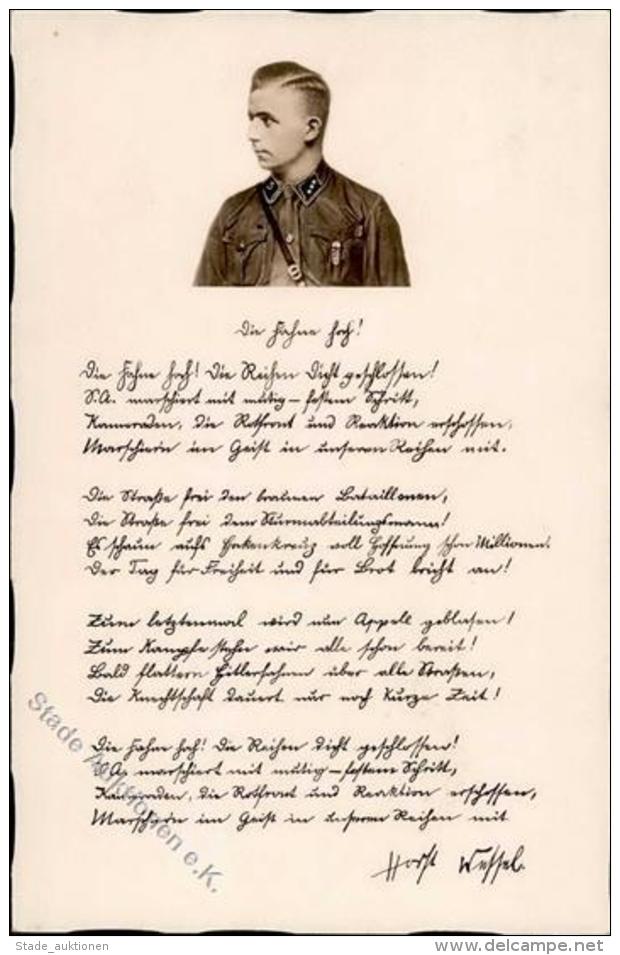 Die Fahne hoch!
Die Fahne hoch! Die Reihen dicht geschlossen!
S.A. marschiert mit mutig-festem Schritt,
Kameraden, die Rotfront und Reaktion erschossen,
Marschiern im Geist in unseren Reihen mit.
Die Straße frei den braunen Bataillonen,
Die Straße frei dem Sturmabteilungsmann!
Es schaun aufs Hakenkreuz voll Hoffnung schon Millionen.
Der Tag für Freiheit und für Brot bricht an!
Zum letztenmal wird nun Appell geblasen!
Zum Kampfe stehn wir alle schon bereit!
Bald flattern Hitlerfahnen über alle Straßen,
Die Knechtschaft dauert nur noch kurze Zeit!
Die Fahne hoch! Die Reihen dicht geschlossen!
S.A. marschiert mit mutig-festem Schritt,
Kameraden, die Rotfront und Reaktion erschossen,
Marschiern im Geist in unseren Reihen mit
Horst Wessel.
Stade Auktionen e.K.
Stade_auktionen
www.delcampe.net